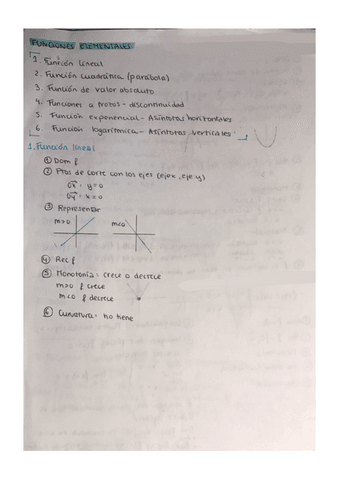 FUNCIONES ELEMENTALES
1. Función lineal
2. Función cuadrática (parábola)
3. Función de valor absoluto
4. Funciones a trozos - discontinuidad
5. Función exponencial - Asíntotas horizontales
6. Función logarítmica - Asíntotas verticales
1. Función lineal
① Dom f
② Ptos de corte con los ejes (eje x, eje y)
OX: y=0
OY: x=0
③ Representar
m>0 m<0
④ Rec f
⑤ Monotonía: crece o decrece
m>0 f crece
m<0 f decrece
⑥ Curvatura: no tiene